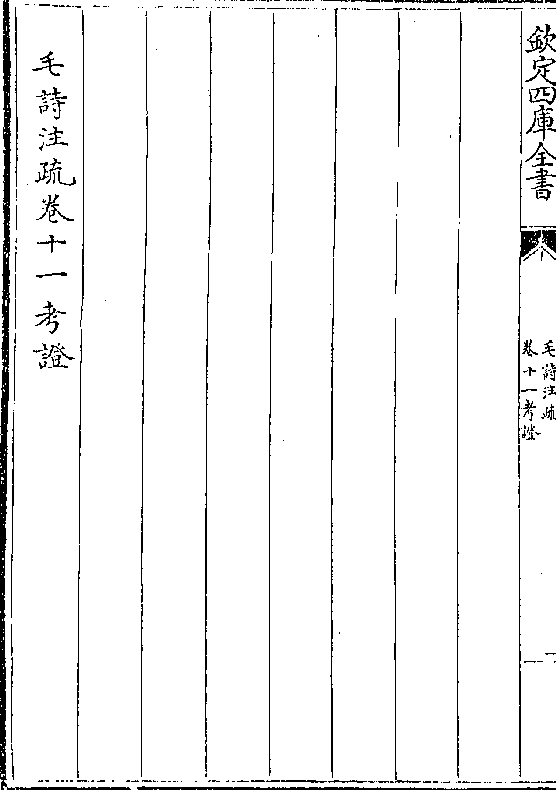 欽定四庫全書
毛詩注疏
卷十一考證
一
毛詩注疏卷十一考證